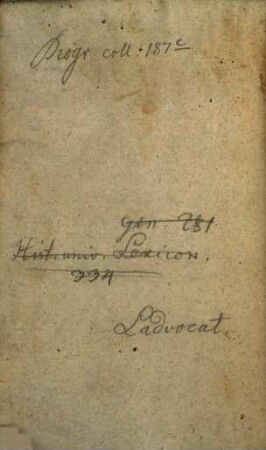 Biogr. coll. 187ᶜ
gen. 781
Hist. univ. Lexicon.
334
Ladvocat.